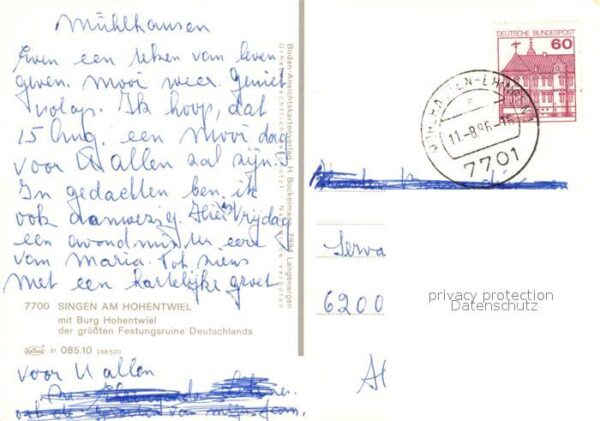 Mühlhausen
Even een teken van leven
geven. Mooi weer. Geniet
volop. Ik hoop, dat
15 Aug. een mooi dag
voor U allen zal zijn.
In gedachten ben ik
ook aanwezig. Hier is Vrijdag
een avondmis ter eere
van Maria. Tot ziens
Met een hartelijke groet
7700 SINGEN AM HOHENTWIEL
mit Burg Hohentwiel
der größten Festungsruine Deutschlands
31 085.10 268520
voor U allen
Bodan-Ansichtskartenverlag H. Bockelmann, 7994 Langenargen
Urheberrechtlich geschützt - Nachdruck verboten
DEUTSCHE BUNDESPOST
60
MÜHLHAUSEN-EHINGEN
11-8.86-16
7701
Serwa
6200
privacy protection
Datenschutz